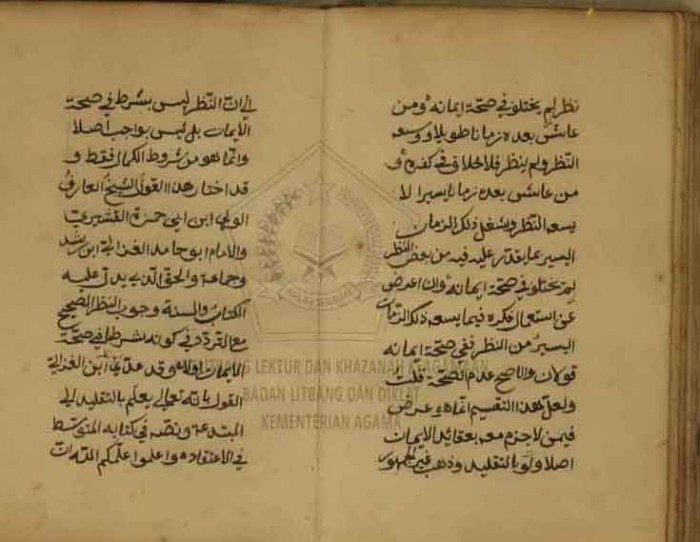 نظر لم يختلف في صحة ايمانه ومن
عاش بعده زمانا طويلا وسعه
النظر ولم ينظر فلا خلاق في كفره و
من عاش بعده زمانا يسيرا لا
يسعه النظر وشغل ذلك الزمان
اليسير بما يقدر عليه فيه من بعض النظر
لم يختلف في صحة ايمانه وان اعرض
عن استعمال فكره فيما يسعه ذلك الزمان
اليسير من النظر ففي صحة ايمانه
قولان والاصح عدم الصحة قلت
ولعل هذا التقسيم انما هو
فيمن لا جزم معه بعقائد الايمان
اصلا ولو بالتقليد وذهب غير الجمهور
الي ان النظر ليس بشرط في صحة
الايمان بل ليس بواجب اصلا
وانما هو من شروط الكمال فقط و
قد اختار هذا القول الشيخ العارف
الولي ابن ابي جمرة القشيري
والامام ابو حامد الغزالي ابن رشد
وجماعة والحق الذي يدل عليه
الكتاب والسنة وجوب النظر الصحيح
مع التردد في كونه شرطا في صحة
الايمان اولا وقد ابن
القول بانه تعالي يعلم بالتقليد الي
المبتدعة ونصه في كتابه المتوسط
في الاعتقاد واعلموا علمكم الله ان
PUSLITBANG LEKTUR DAN KHAZANAH KEAGAMAAN
BADAN LITBANG DAN DIKLAT
KEMENTERIAN AGAMA